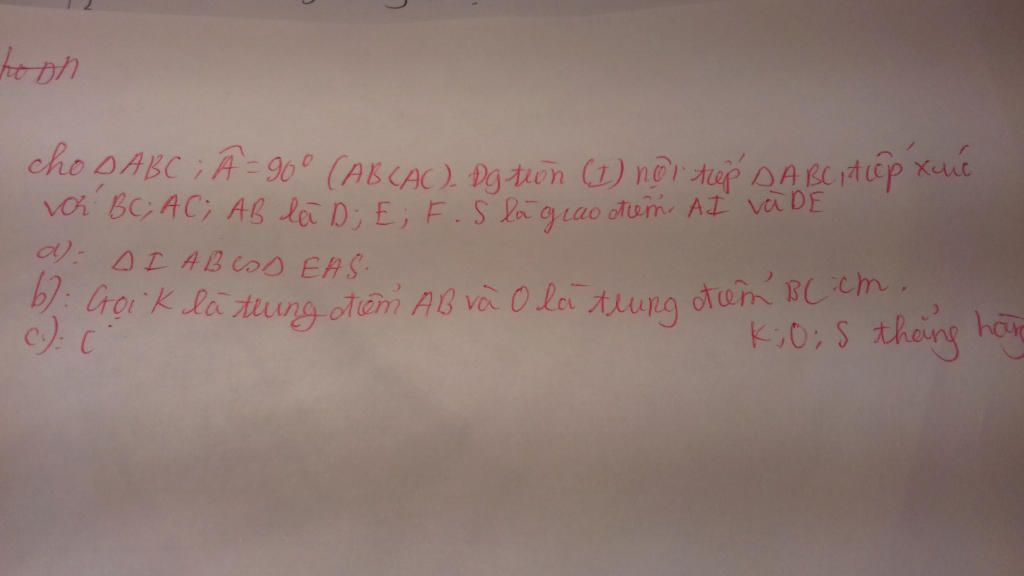 cho ΔABC ; Â = 90° (AB<AC). Đg tròn (I) nội tiếp ΔABC, tiếp xúc
với BC; AC; AB là D; E; F. S là giao điểm AI và DE
a): Δ I AB ∽ Δ EAS.
b): Gọi K là trung điểm AB và O là trung điểm BC : cm.
K; O; S thẳng hàng
c): C